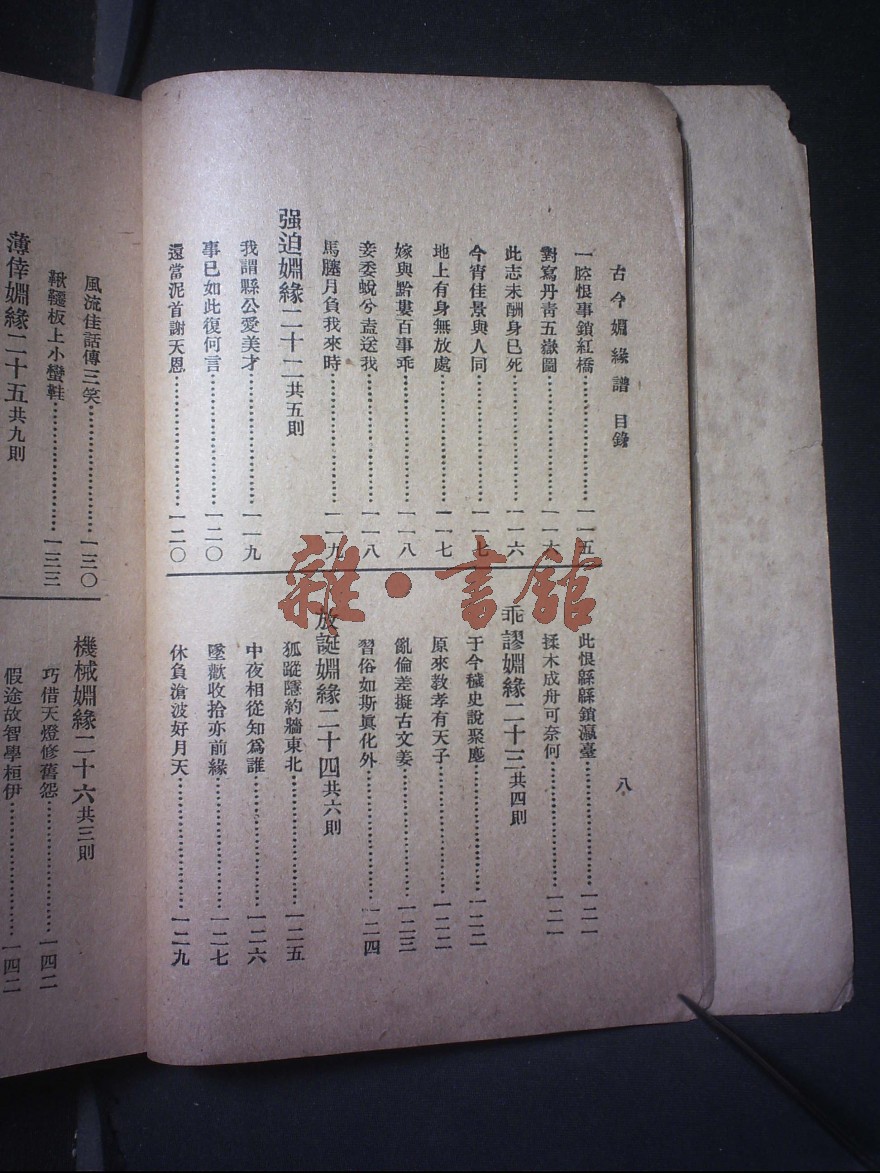 古今婣緣譜 目錄
八
一腔恨事鎖紅橋……一一五
對寫丹青五嶽圖……一一六
此志未酬身已死……一一六
今宵佳景與人同……一一七
地上有身無放處……一一七
嫁與黔婁百事乖……一一八
妾委蛻兮盍送我……一一八
馬䭾月負我來時……一一九
强迫婣緣二十二共五則
我謂縣公愛美才……一一九
事已如此復何言……一二〇
還當泥首謝天恩……一二〇
此恨緜緜鎖瀛臺……一二一
揉木成舟可奈何……一二一
乖謬婣緣二十三共四則
于今穢史說聚麀……一二二
原來教孝有天子……一二二
亂倫差擬古文姜……一二三
習俗如斯眞化外……一二四
放誕婣緣二十四共六則
狐蹤隱約牆東北……一二五
中夜相從知為誰……一二六
墜歡收拾亦前緣……一二七
休負滄波好月天……一二九
風流佳話傳三笑……一三〇
鞦韆板上小蠻鞋……一三三
薄倖婣緣二十五共九則
機械婣緣二十六共三則
巧借天燈修舊怨……一四二
假途故智學桓伊……一四二
雜·書舘